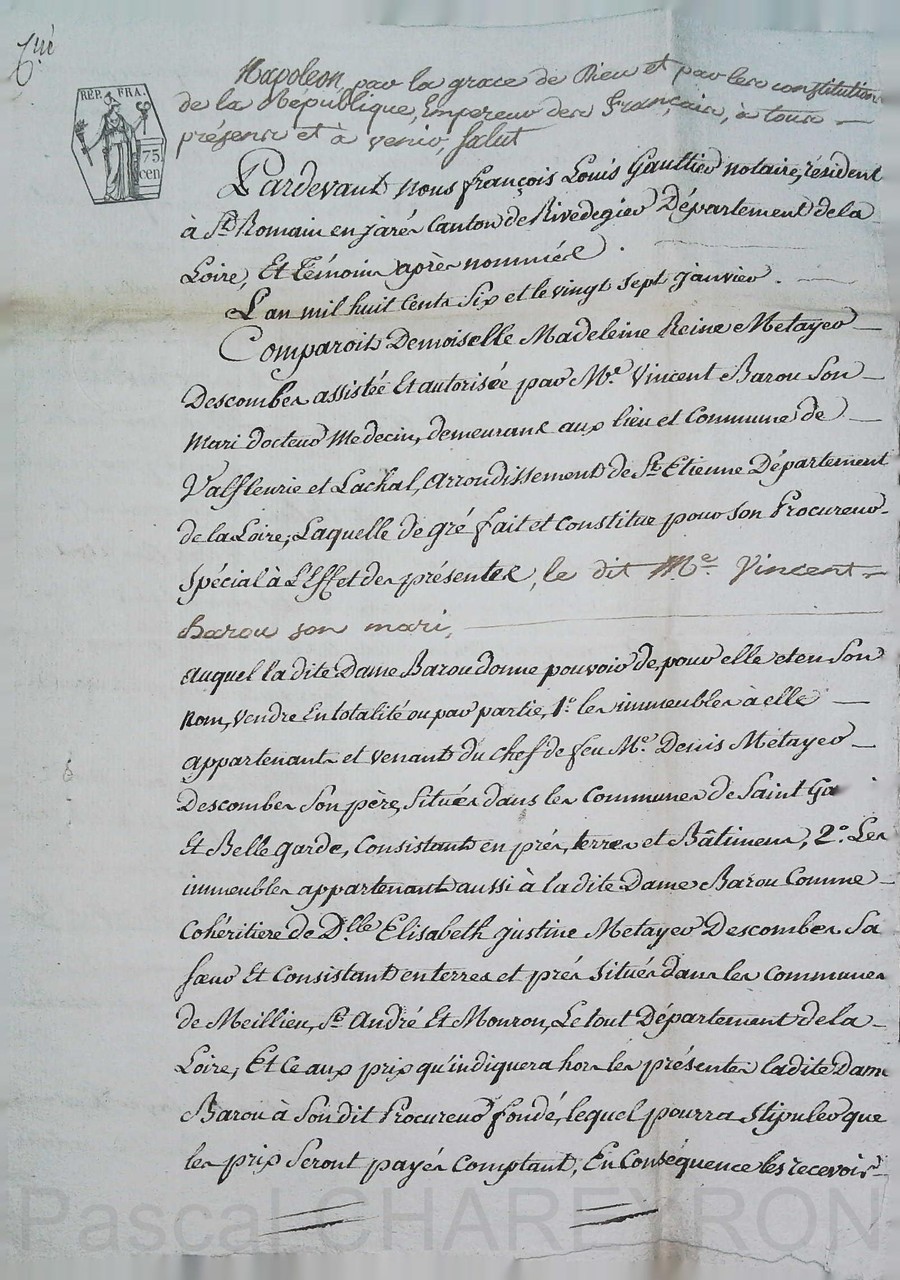 REP. FRA.
75
cen
Napoleon par la grace de Dieu et par les constitutions
de la République, Empereur des Français, à tous
présents et à venir, Salut
Pardevant nous françois Louis Gaultier notaire, résident
à St. Romain en jarés Canton de Rivedegier Département de la
Loire, Et témoins après nommés.
L'an mil huit Cents Six et le vingt sept janvier.
Comparoit Demoiselle Madeleine Reine Metayer
Descombes assistée Et autorisée par Mr. Vincent Barou Son
mari docteur Medecin, demeurant aux lieu et Commune de
Valfleurie et Lachal, arrondissement de St. Etienne Département
de la Loire; Laquelle de gré fait et Constitue pour son Procureur
Spécial à L'Effet des présentes, le dit Me. Vincent
Barou son mari,
auquel la dite Dame Barou donne pouvoir de, pour elle et en Son
nom, vendre En totalité ou par partie, 1o. les immeubles à elle
appartenants et venants du chef de feu Mr. Denis Metayer
Descombes Son père, Situés dans les Communes de Saint Ga
Et Belle garde, Consistants en prés, terres et Bâtimens, 2o. Les
immeubles appartenants aussi à la dite Dame Barou Comme
Cohéritiere de Dlle Elisabeth justine Metayer Descombes Sa
sœur Et Consistant en terres et prés Situés dans les Communes
de Meillieu, St. André Et Monron, Le tout Département de la
Loire, Et Ce aux prix qu'indiquera hors les présentes la dite Dame
Barou à Son dit Procureur fondé, lequel pourra Stipuler que
les prix Seront payés Comptant, En Conséquence les recevoir
Pascal CHAREYRON